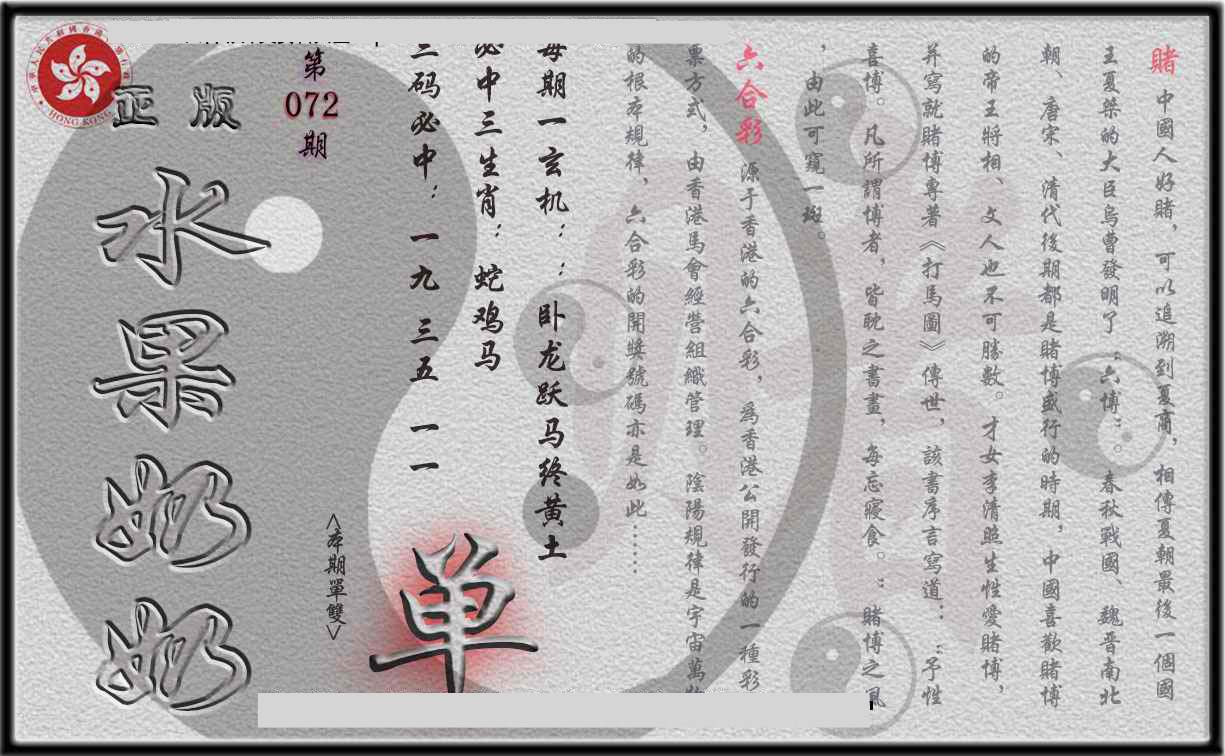 賭 中國人好賭，可以追溯到夏商，相傳夏朝最後一個國
王夏桀的大臣烏曹發明了“六博”。春秋戰國、魏晋南北
朝、唐宋、清代後期都是賭博盛行的時期，中國喜歡賭博
的帝王將相、文人也不可勝數。才女李清照生性愛賭博，
并寫就賭博專著《打馬圖》傳世，該書序言寫道：“予性
喜博。凡所謂博者，皆耽之書畫，每忘寢食。”賭博之風
，由此可窺一斑。
六合彩 源于香港的六合彩，為香港公開發行的一種彩
票方式，由香港馬會經營組織管理。陰陽規律是宇宙萬物
的根本規律，六合彩的開獎號碼亦是如此……
每期一玄机：：卧龙跃马终黄土
必中三生肖：蛇鸡马
三码必中：一九 三五 一一
<本期單雙>
单
第
072
期
正版
水果奶奶
HONG KONG